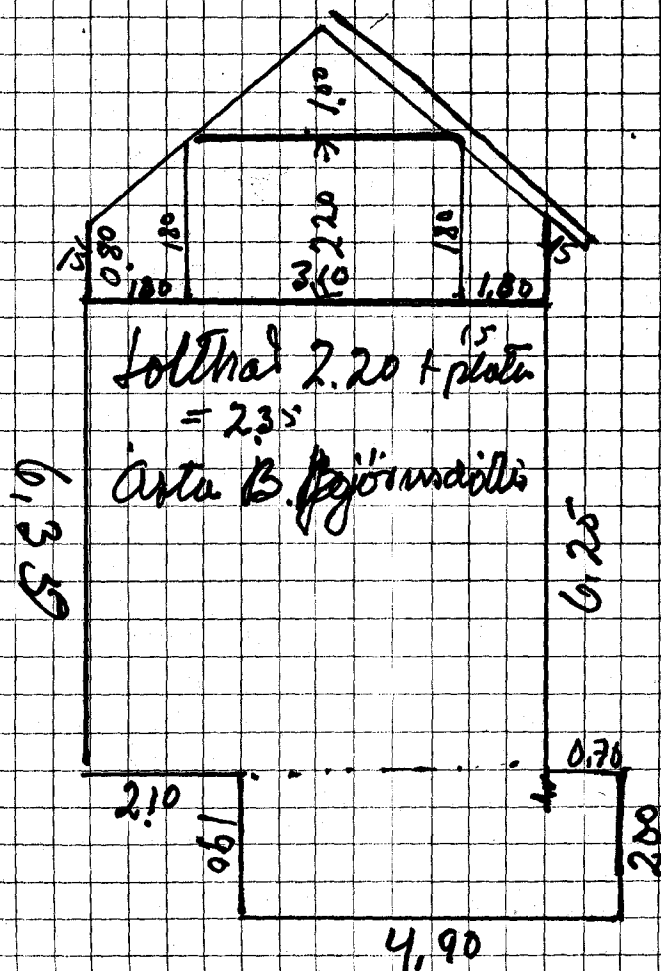 1.00
220
180
180
15
0.80
15
1.80
3.50
1.80
Lofthæð 2.20 + plata 15
= 2.35
Ásta B. Björnsdóttir
6,35
6.25
2.10
0.70
190
200
4,90